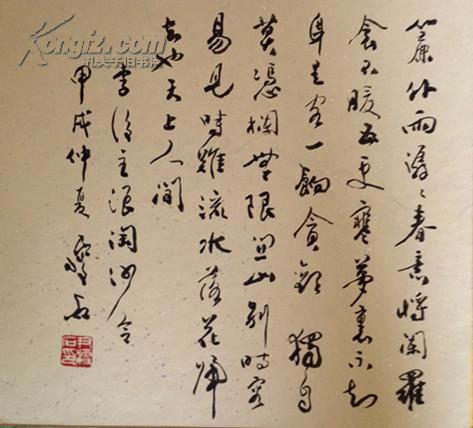 簾外雨潺々春意將闌羅
衾不暖五更寒夢裏不知
身是客一餉貪歡獨自
莫憑欄無限關山別時容
易見時難流水落花歸
去也天上人間
李後主浪淘沙令
甲戌仲夏
Kongfz.com
孔夫子旧书网